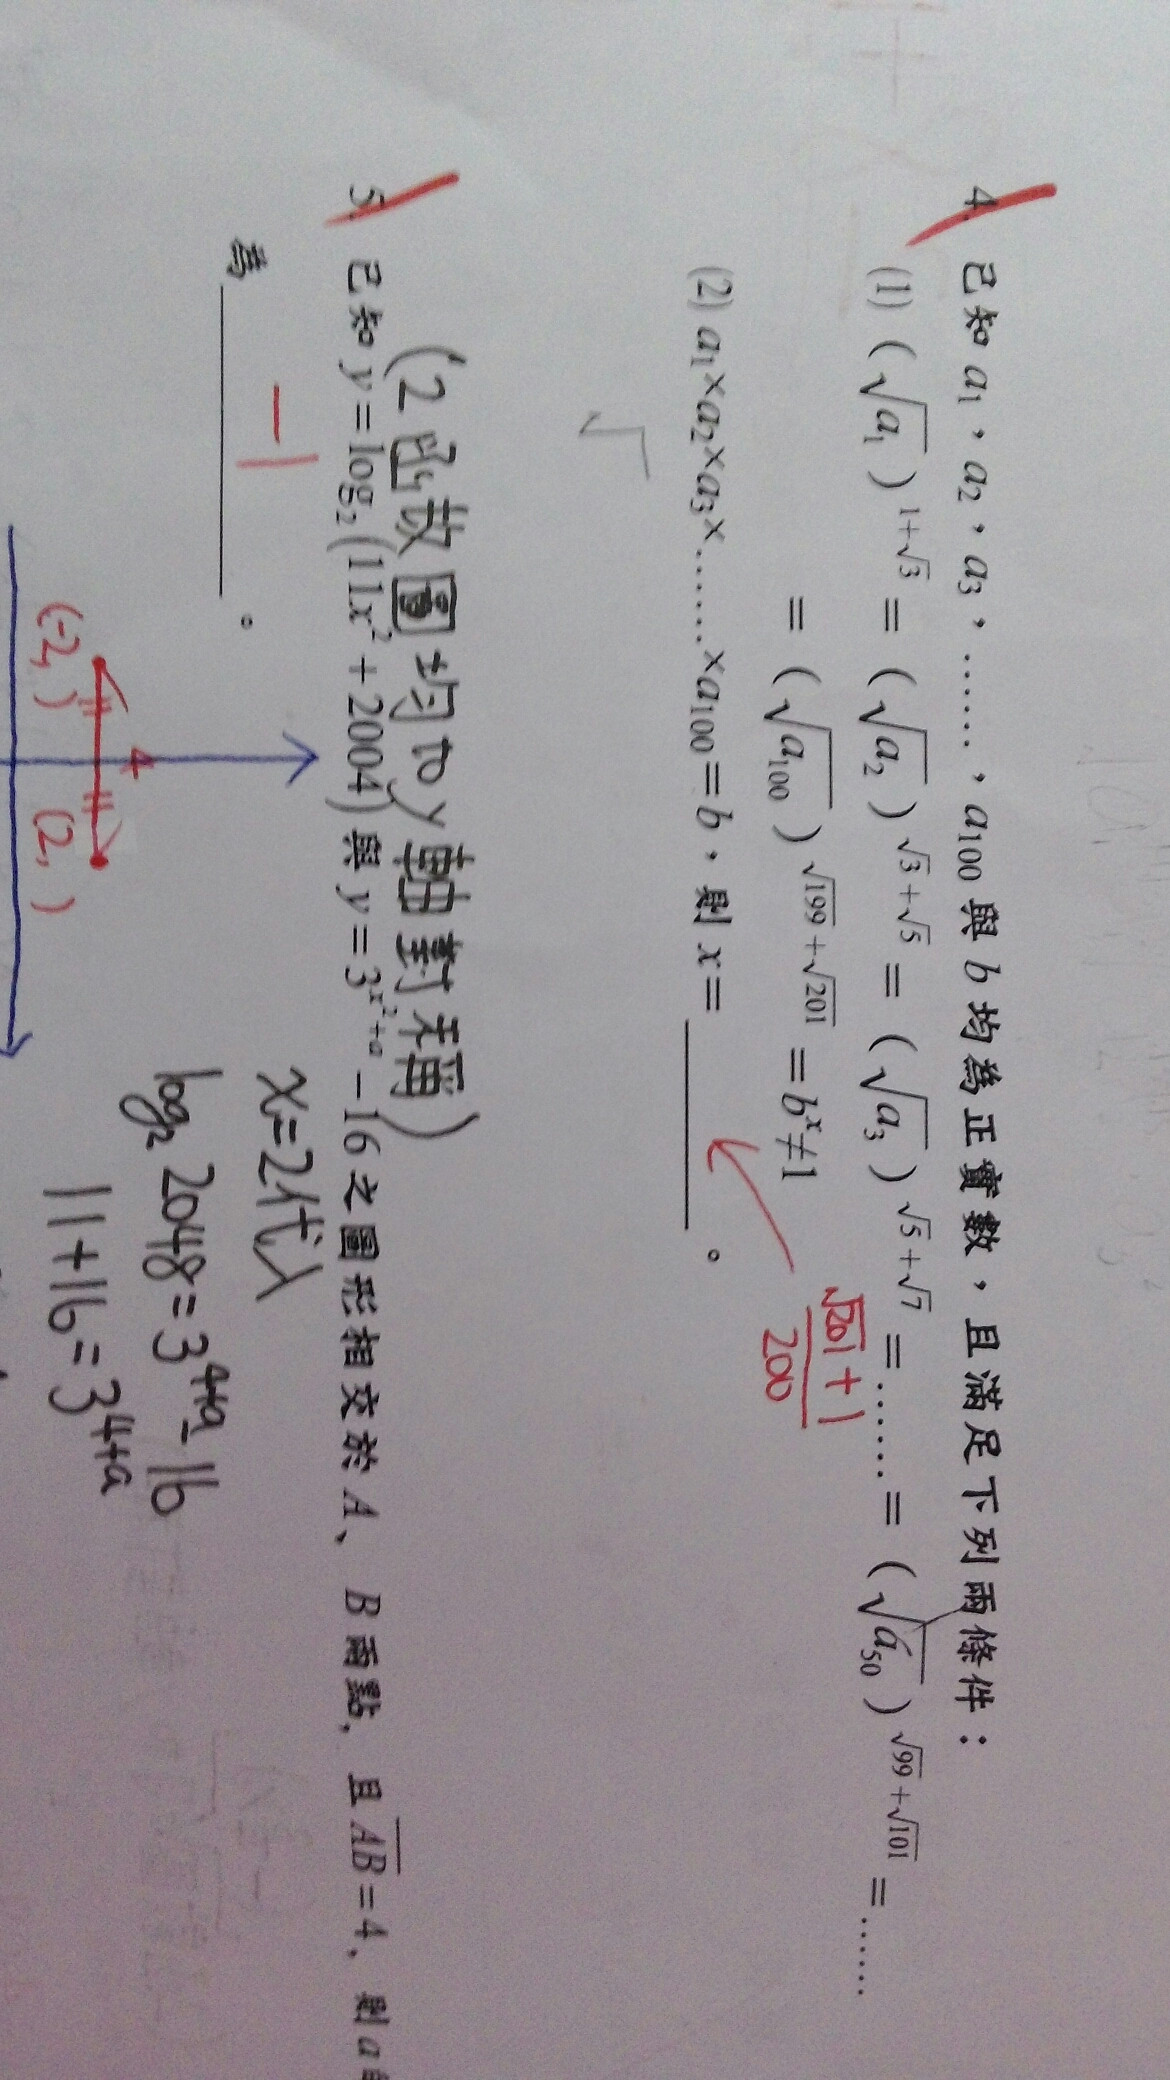 4. 已知 a₁，a₂，a₃，……，a₁₀₀ 與 b 均為正實數，且滿足下列兩條件：
(1) (√a₁)^(1+√3) = (√a₂)^(√3+√5) = (√a₃)^(√5+√7) = …… = (√a₅₀)^(√99+√101) = ……
= (√a₁₀₀)^(√199+√201) = b^x ≠ 1
(2) a₁×a₂×a₃×……×a₁₀₀ = b，則 x = ________。
(√201+1)/200
√
(2函故圖均to y軸對稱)
5. 已知 y = log₂(11x²+2004) 與 y = 3^(x²+a) －16 之圖形相交於 A、B 兩點，且 AB = 4，則 a
為 ________。
－1
x=2代入
log₂ 2048 = 3^(4+a) － 16
11+16 = 3^(4+a)
4
(-2, )
(2, )